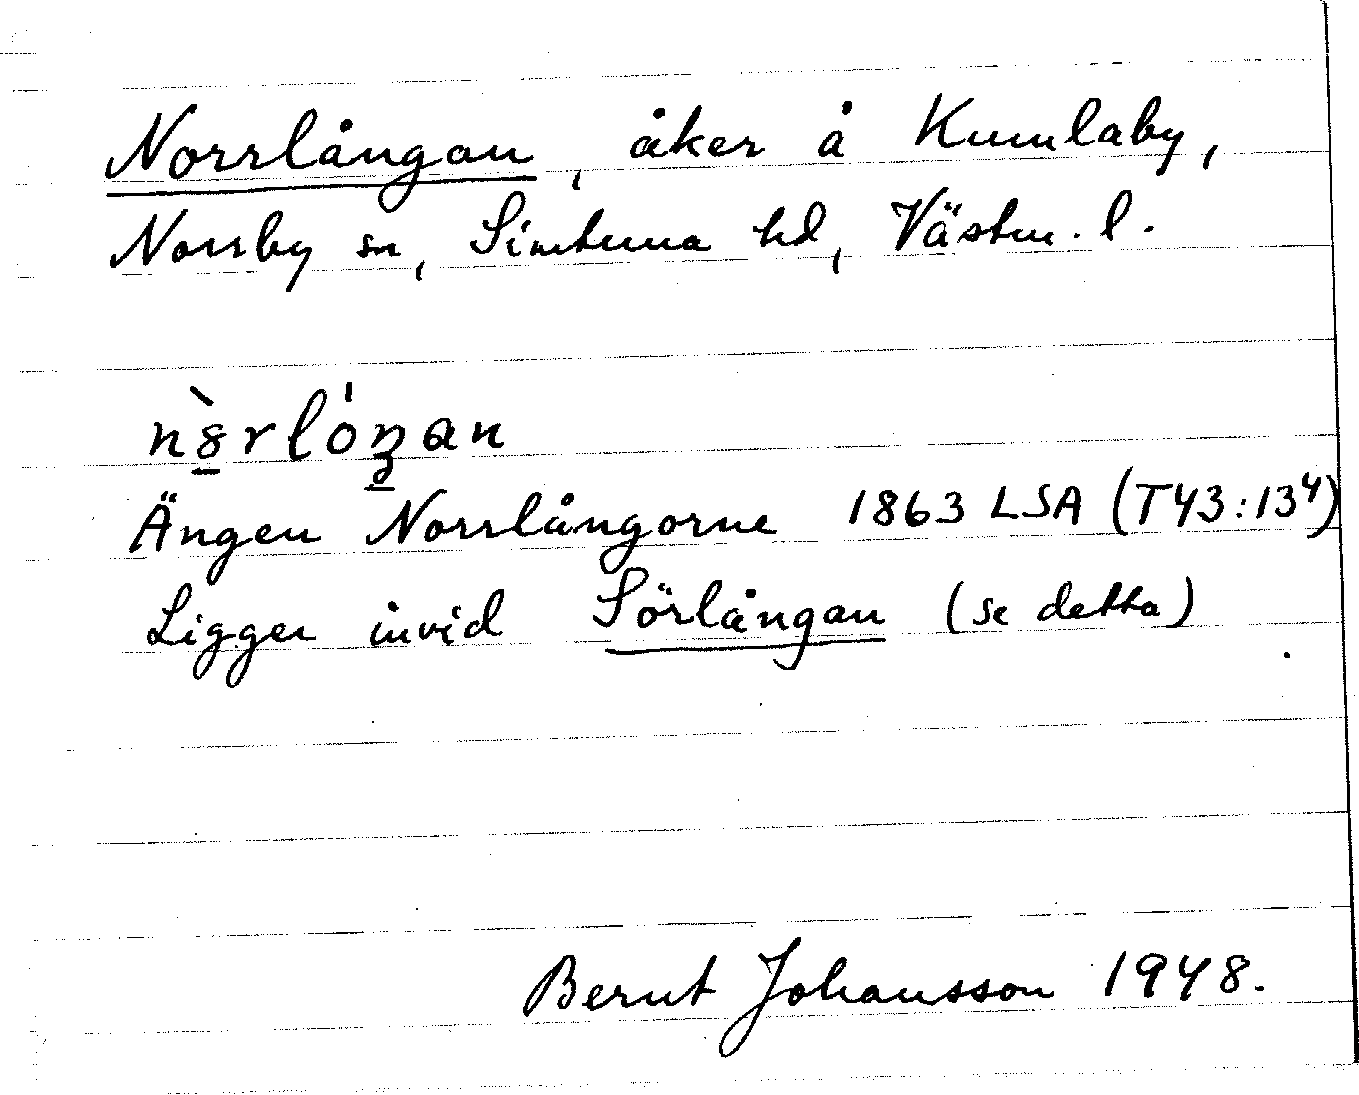 Norrlångan, åker å Kumlaby,
Norrby sn, Simtuna hd, Västm. l.
n8̀rlóŋan
Ängen Norrlångorne 1863 LSA (T43:13⁴)
Ligger invid Sörlångan (se detta)
Bernt Johansson 1948.